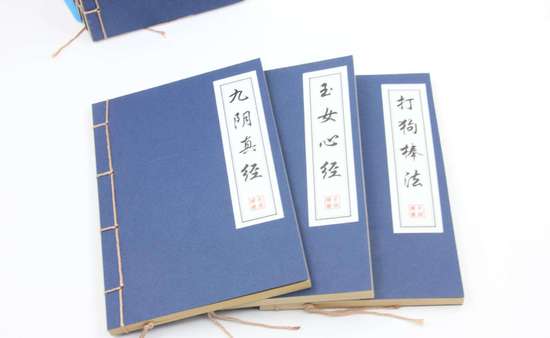 九阴真经
玉女心经
打狗棒法